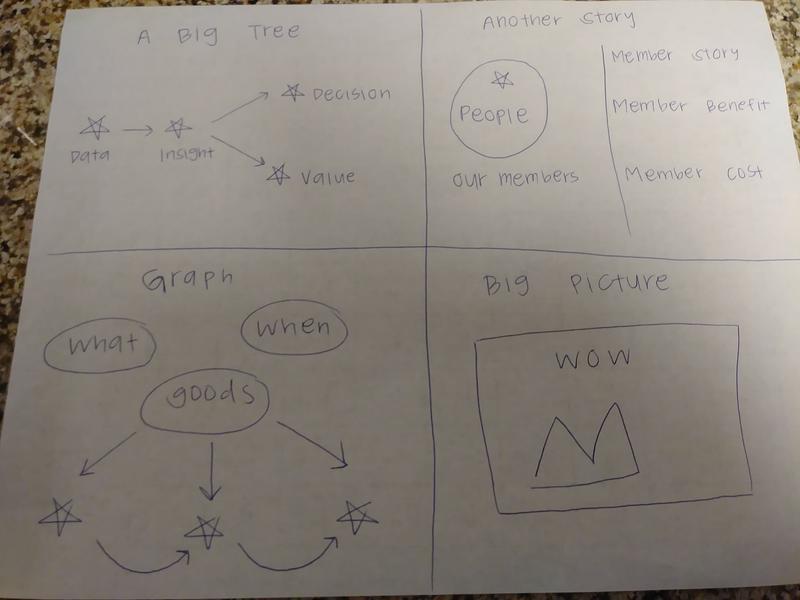 A Big Tree
Data
Insight
Decision
Value
Another Story
People
our members
Member Story
Member Benefit
Member Cost
Graph
what
when
goods
Big Picture
WOW